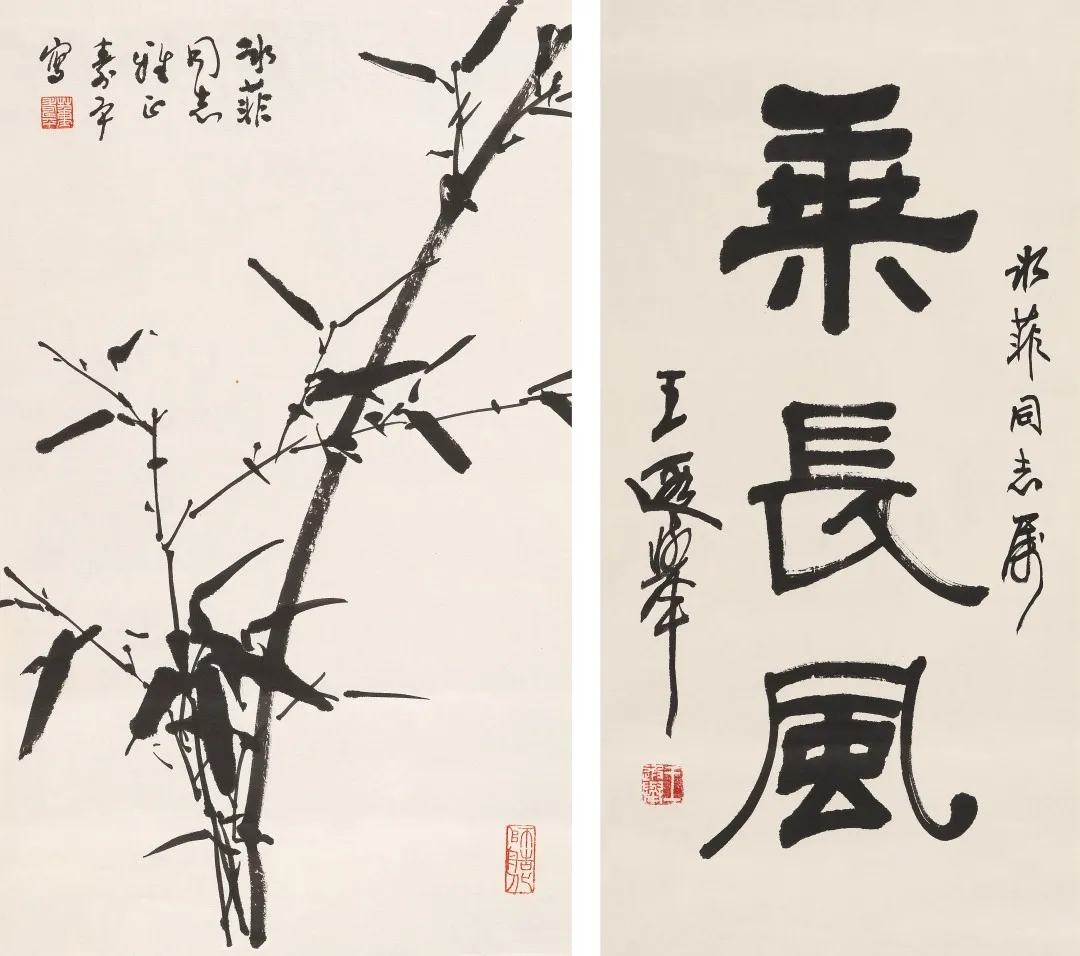 冰菲
同志
雅正
壽平
寫
師造化
冰菲同志属
乘長風
王遐舉